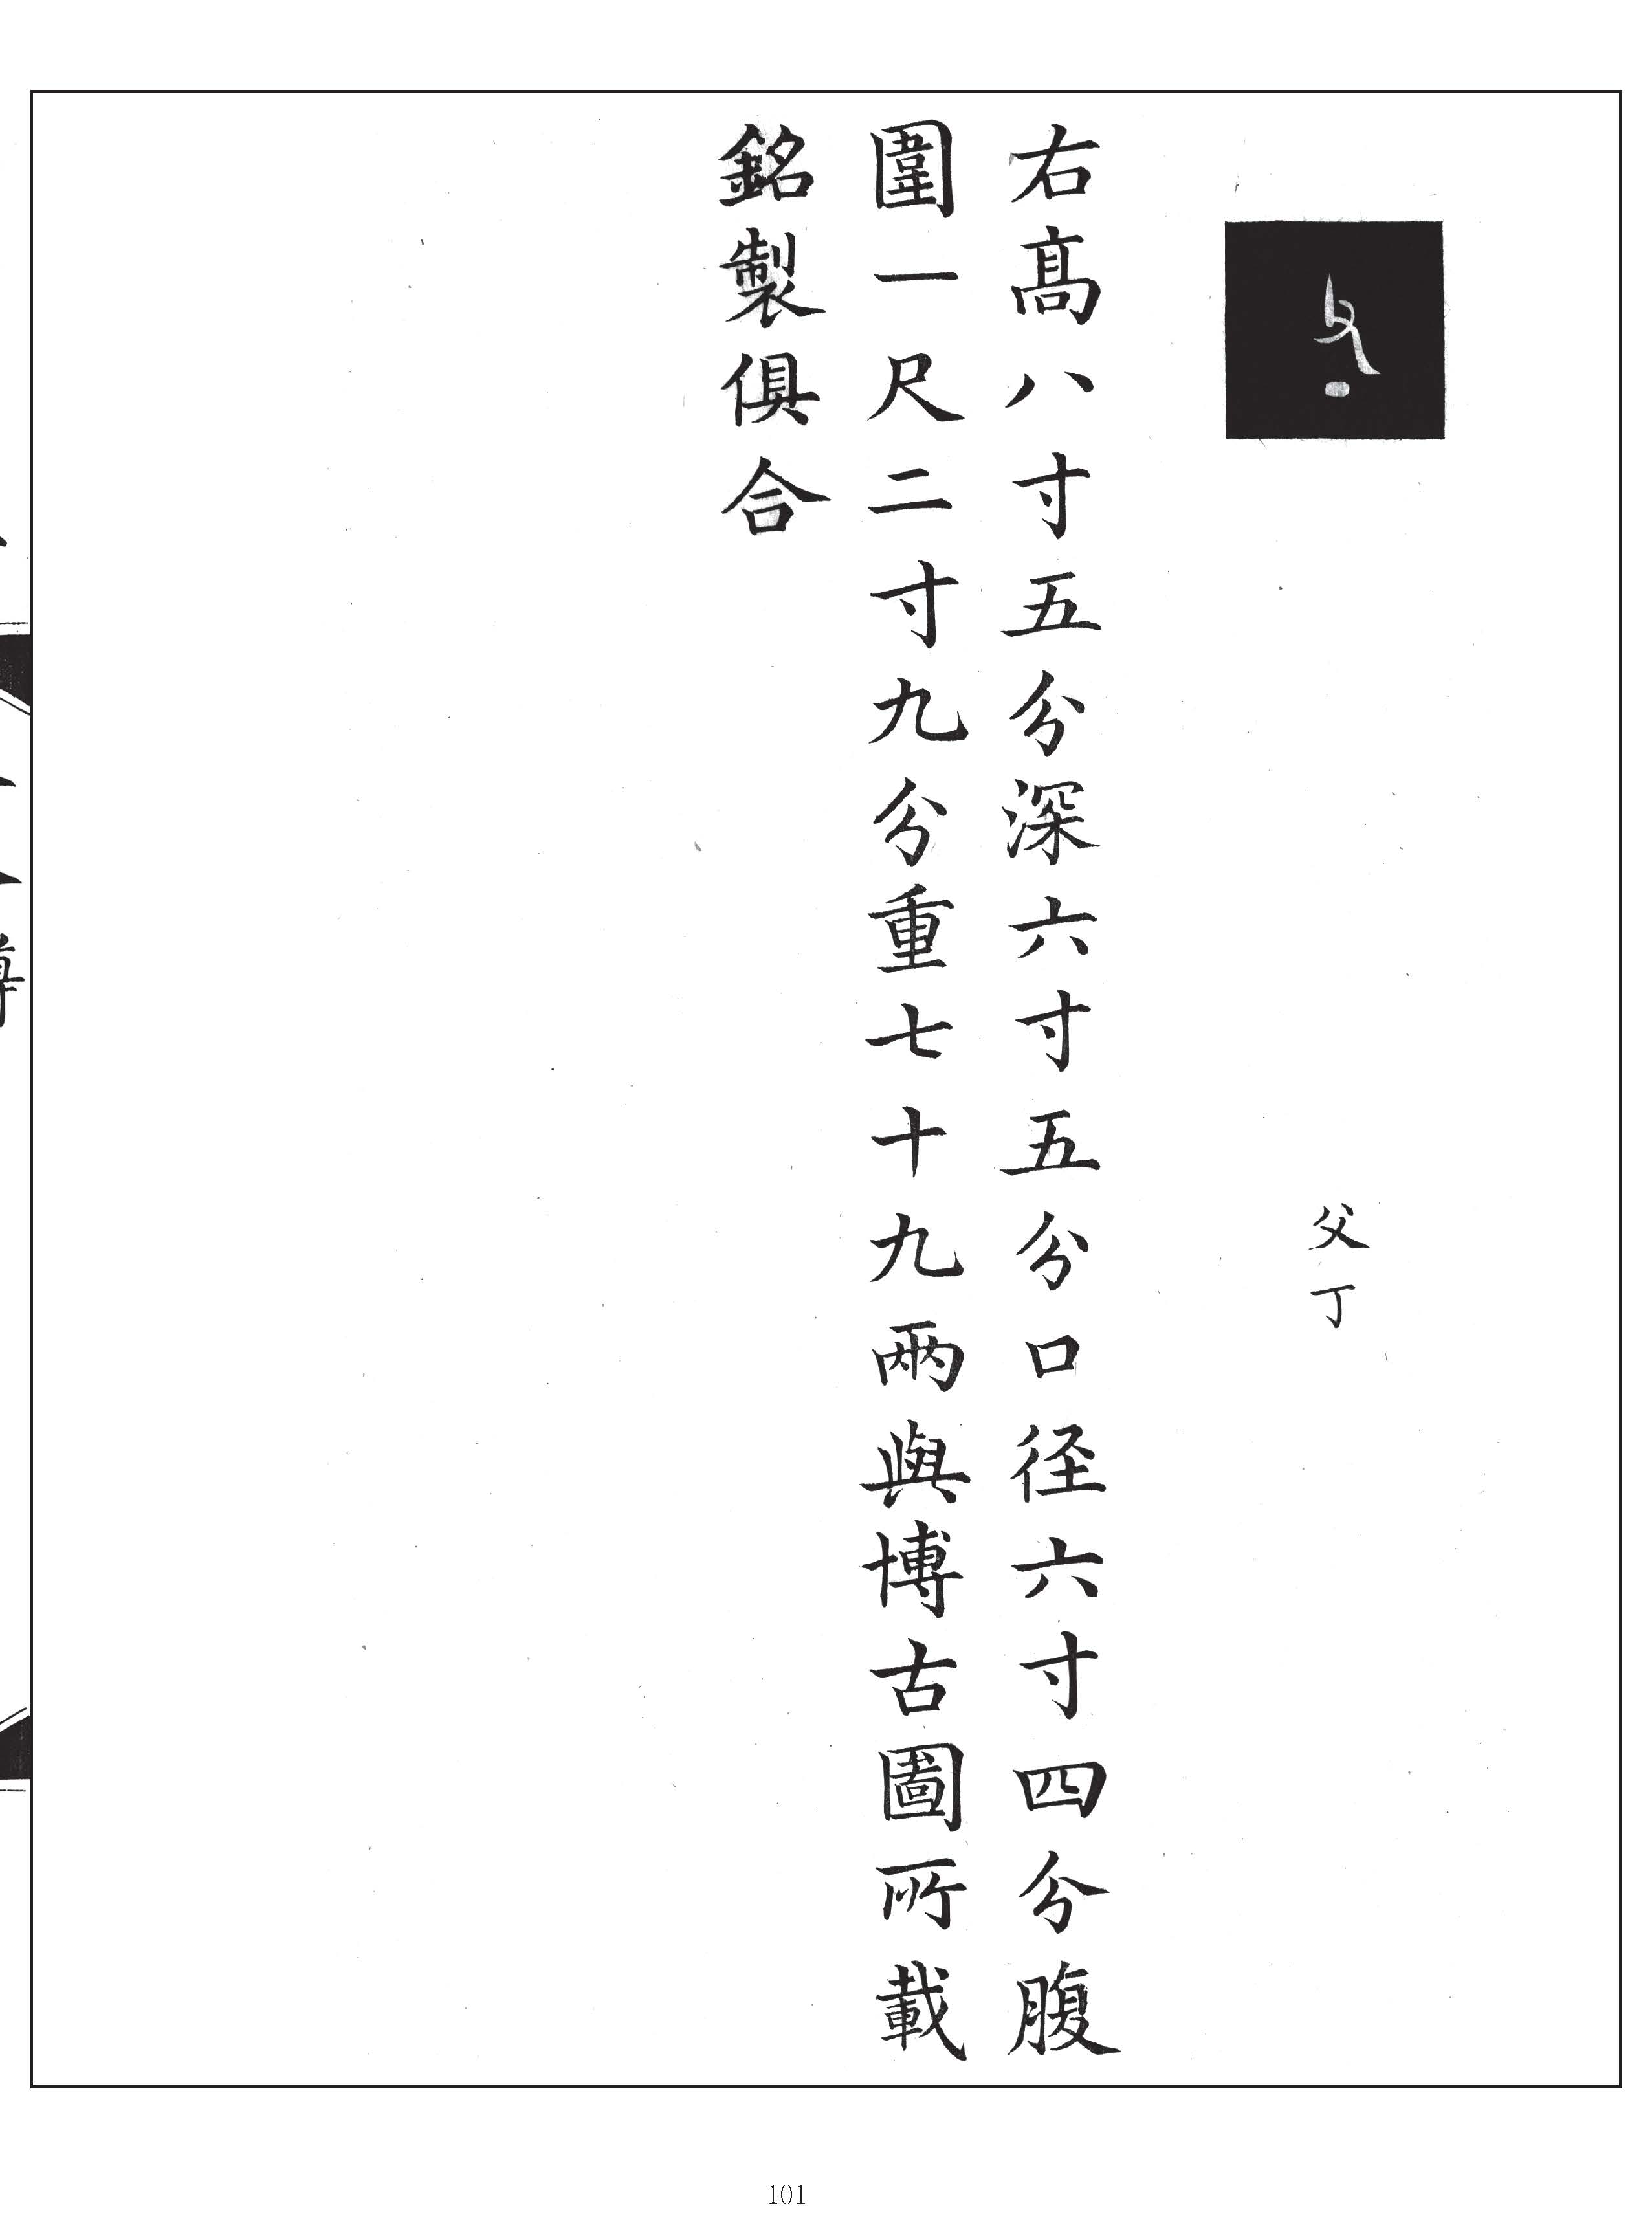 父丁
右高八寸五分深六寸五分口径六寸四分腹
圍一尺二寸九分重七十九兩與博古圖所載
銘製俱合
101